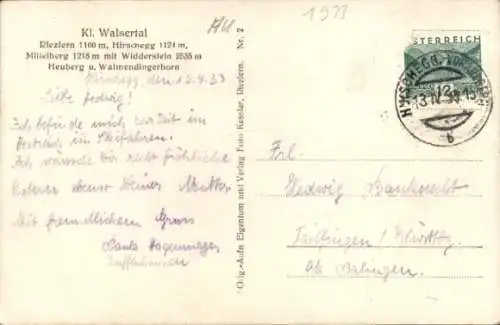 Kl. Walsertal
Riezlern 1100 m, Hirschegg 1124 m,
Mittelberg 1218 m mit Widderstein 2535 m
Heuberg u. Walmendingerhorn
Hirschegg den 12.4.33
Liebe Hedwig!
Ich befinde mich zur Zeit im
im Skifahren.
Ich wünsche Dir recht fröhliche
Ostern Deiner Mutter.
Mit freundlichem Gruss
Nr. 2
Orig.-Aufn Eigentum und Verlag Foto Kessler, Riezlern.
1933
ÖSTERREICH
HIRSCHEGG
Frl.
Hedwig
Tailfingen / Württbg.
o/a Balingen